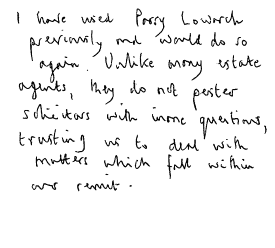 I have used Parry Lowarch
previously and would do so
again. Unlike many estate
agents, they do not pester
solicitors with inane questions,
trusting us to deal with
matters which fall within
our remit.